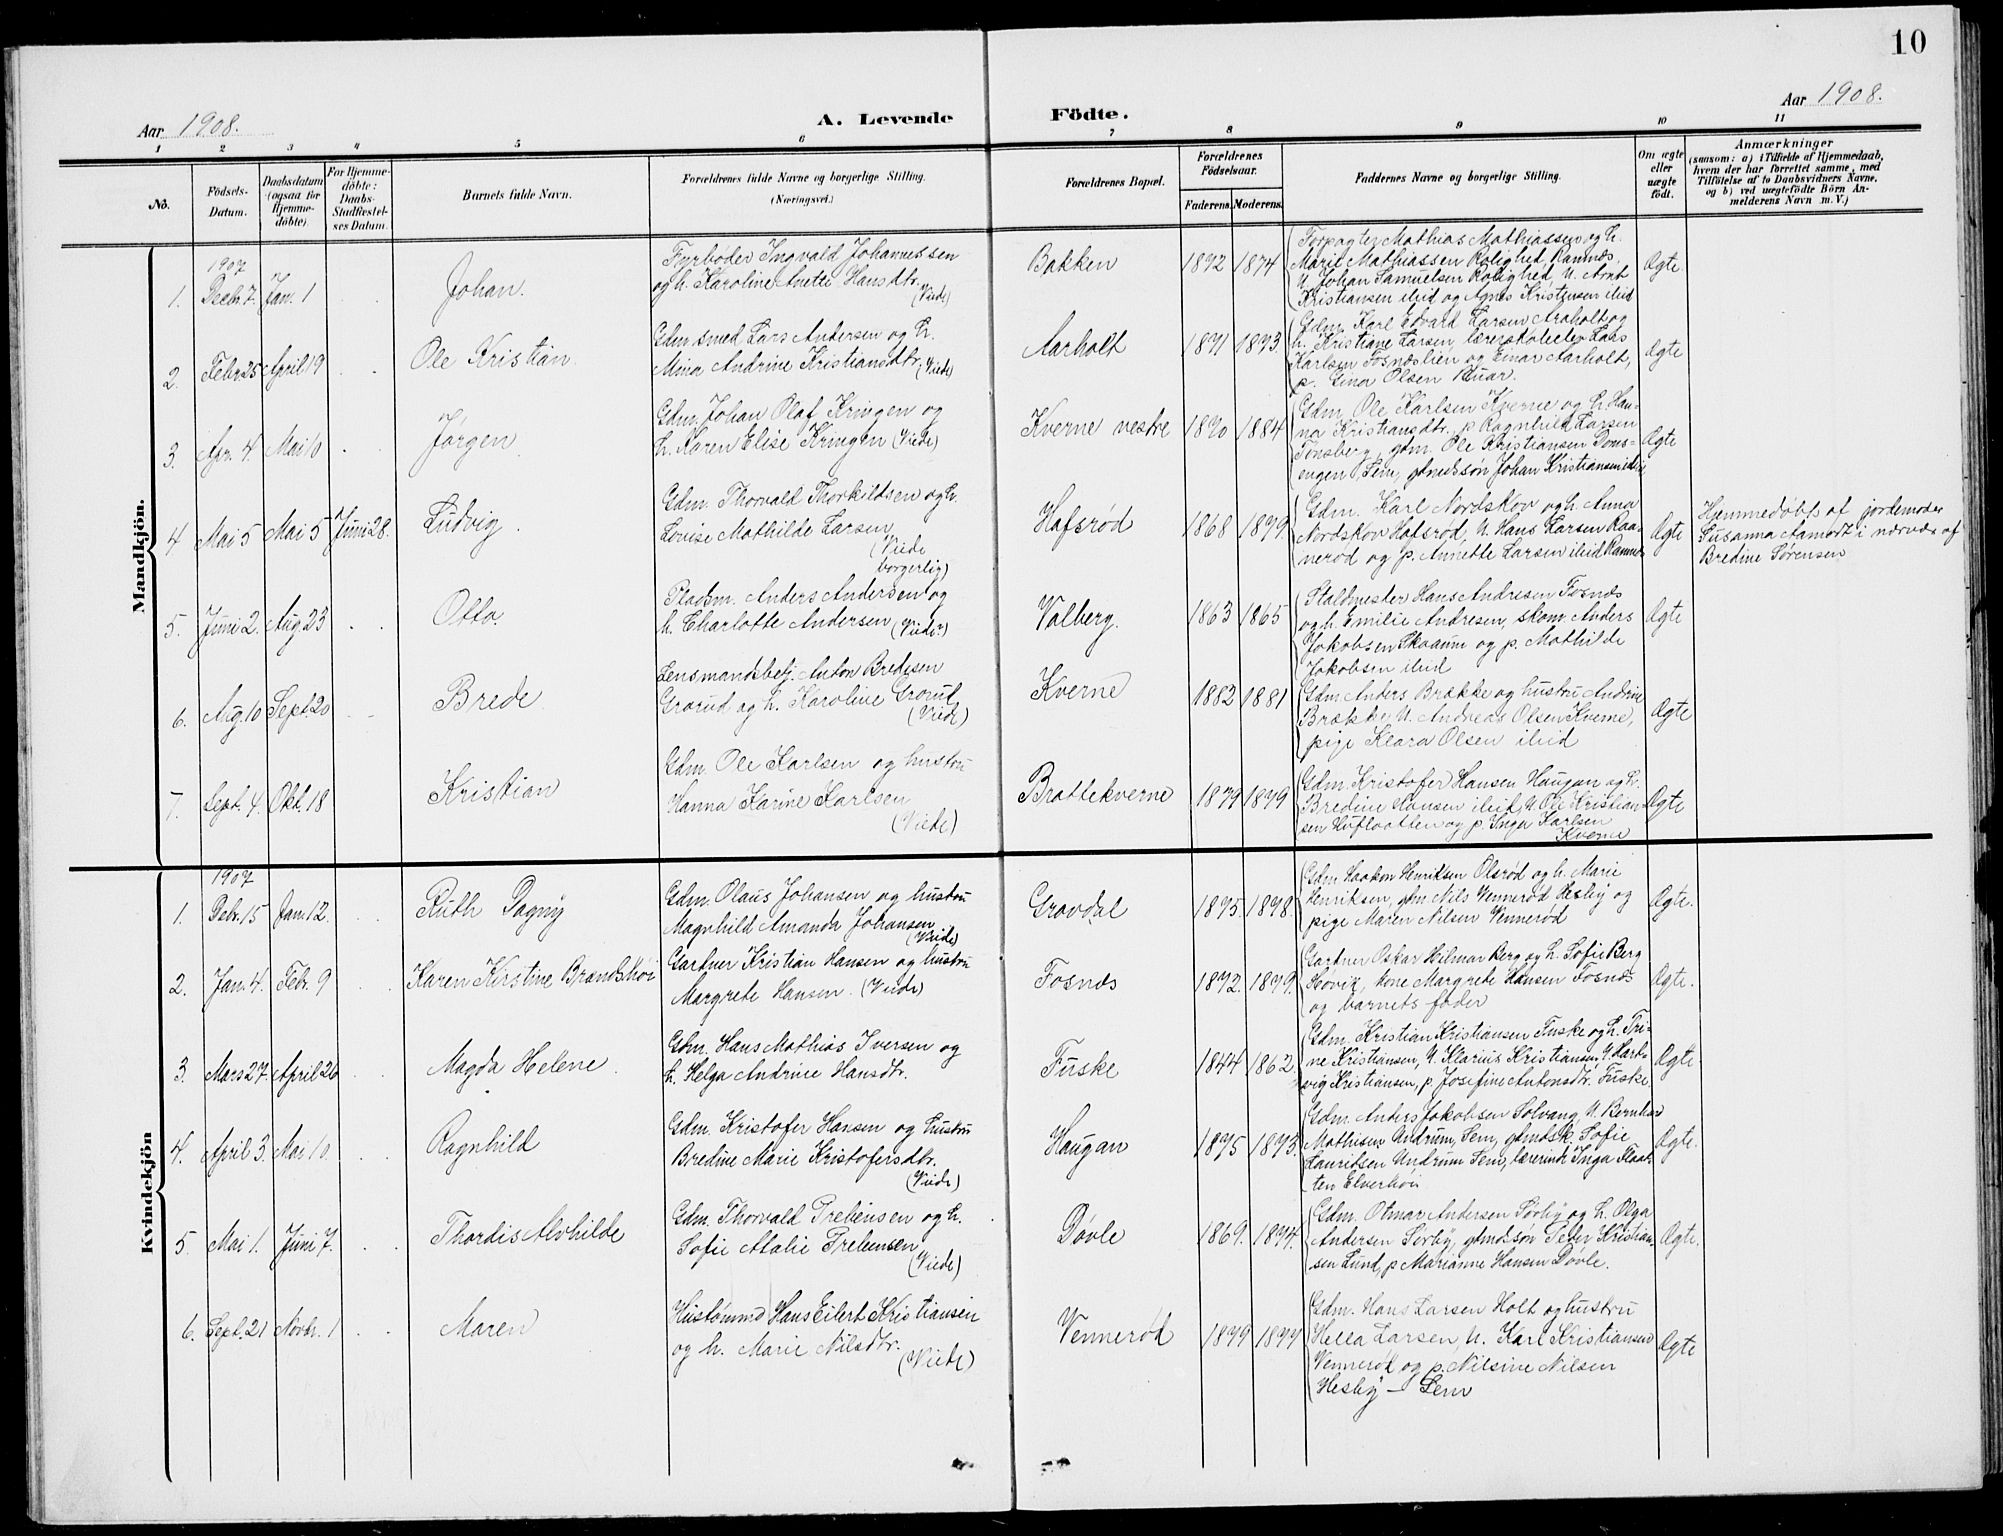 10
Aar 1908.
A. Levende
Födte.
Aar 1908.
1 2 3 4 5 6 7 8 9 10 11
No.
Födsels-
Datum.
Daabsdatum
(ogsaa for
Hjemme-
döbte)
For Hjemme-
döbte:
Daabs-
Stadfæstel-
ses Datum.
Barnets fulde Navn.
Forældrenes fulde Navne og borgerlige Stilling.
(Næringsvei.)
Forældrenes Bopæl.
Forældrenes
Födselsaar.
Faderens. Moderens.
Faddernes Navne og borgerlige Stilling.
Om ægte
eller
uægte
födt.
Anmærkninger
(saasom: a) i Tilfælde af Hjemmedaab,
hvem der har forrettet samme, med
Tilföielse af to Daabsvidners Navne.
og b) ved uægtefödte Börn An-
melderens Navn m. V.)
Mandkjön.
1907
1. Decbr. 7. Jan. 1
Johan.
Fyrbøder Ingvald Johannessen
og h. Karoline Anette Hansdtr.
(Viede)
Bakken
1872 1874
Forpagter Mathias Mathiassen og h.
Marie Mathiassen Rolighed, Ramnæs
U. Johan Samuelsen Rolighed, U. Arnt
Kristiansen ibid og Agnes Kristensen ibid
Ægte
2. Febr 25 April 19
Ole Kristian.
Gdm. smed Lars Andersen og h.
Mina Andrine Kristiansdtr. (Viede)
Aarholt
1871 1873
Gdm. Karl Edvard Larsen Araholt og
h. Kristiane Larsen, lærerskoleelev Lars
Karlsen Fosnæslien og Einar Aarholt,
p. Gina Olsen Ruar.
Ægte
3. Apr. 4. Mai 10
Jørgen
Gdm. Johan Olaf Kringen og
h. Karen Elise Kringen (Viede)
Kverne vestre
1870 1884
Gdm. Ole Karlsen Kverne og h. Han-
na Kristiansdtr., p Ragnhild Larsen
Tønsberg, gdm. Ole Kristiansen Dons-
engen Sem, gdmdssøn Johan Kristiansen ibid
Ægte
4 Mai 5 Mai 5 Juni 28.
Ludvig.
Gdm. Thorvald Thorkildsen og h.
Lovise Mathilde Larsen
(Viede
borgerlig)
Hafsrød
1868 1879.
Gdm. Karl Nordskov og h. Anna
Nordskov Hafsrød, U. Hans Larsen Raa-
nerød og p. Annette Larsen ibid Ramnæs
Ægte
Hjemmedøbt af jordemoder
Susanna Aamodt i nærvær af
Bredine Sørensen
5. Juni 2. Aug. 23
Otto
Pladsm. Anders Andersen og
h. Charlotte Andersen (Viede)
Valberg.
1863 1865
Staldmester Hans Andresen Fosnæs
og h. Emilie Andresen, skom. Anders
Jakobsen Skaaum og p. Mathilde
Jakobsen ibid
Ægte
6. Aug. 10 Sept. 20
Brede
Lensmandsbetj. Anton Bredesen
Grorud og h. Karoline Grorud
(Viede)
Kverne
1882 1881
Gdm. Anders Brække og hustru Andrine
Brække, U. Andreas Olsen Kverne,
pige Klara Olsen ibid
Ægte
7. Sept. 4. Okt. 18
Kristian
Gdm. Ole Karlsen og hustru
Hanna Karine Karlsen
(Viede)
Brattekverne
1879 1879
Gdm. Kristofer Hansen Haugan og h.
Bredine Hansen ibid, U. Ole Kristian-
sen og p. Inga Karlsen
Kverne
Ægte
Kvindekjön
1907
1. Debr. 15 Jan. 12.
Ruth Dagny
Gdm. Olaus Johansen og hustru
Magnhild Amanda Johansen
(Viede)
Gravdal
1875. 1878.
Gdm. Haakon Henriksen Olsrød og h. Marie
Henriksen, gdm Nils Vennerød Hesby og
pige Maren Nilsen Vennerød
Ægte.
2. Jan. 4. Febr. 9
Karen Kirstine Brandshøi
Gartner Kristian Hansen og hustru
Margrete Hansen. (Viede)
Fosnæs
1872. 1879.
Gartner Oskar Hilmar Berg og h. Sofie Berg
Skovik, kone Margrete Hansen Fosnæs
og barnets fader
Ægte.
3. Mars 27. April 26
Magda Helene.
Gdm. Hans Mathias Iversen og
h. Helga Andrine Hansdtr.
Fuske
1844 1862
Gdm. Kristian Kristiansen Fuske og h. Tri-
ne Kristiansen, U. Klarius Kristiansen, U. Hart-
vig Kristiansen, p. Josefine Antonsdtr. Fuske.
Ægte
4. April 3. Mai 10
Ragnhild
Gdm. Kristofer Hansen og hustru
Bredine Marie Kristofersdtr.
(Viede)
Haugan
1875 1873.
Gdm. Anders Jakobsen Solvang, U. Bernhard
Mathisen Undrum, Sem, gdmdsk. Sofie
Lauritsen Undrum Sem, lærerinde Inga Flaat-
ten Elverhøi
Ægte.
5. Mai 1. Juni 7.
Thordis Alvhilde
Gdm. Thorvald Prebensen og h.
Sofie Atalie Prebensen
(Viede)
Døvle
1869. 1874.
Gdm. Otmar Andersen Sørby og h. Olga
Andersen Sørby, gdmdssøn Peder Kristian-
sen Lund, p Marianne Hansen Døvle.
Ægte.
6. Sept. 21 Novbr. 1
Maren
Hustømmd Hans Eilert Kristiansen
og h. Marie Nilsdtr.
(Viede)
Vennerød
1879 1877
Gdm. Hans Larsen Holt og hustru
Hella Larsen, U. Karl Kristiansen
Vennerød og p. Nilsine Nilsen
Hesby – Sem
Ægte